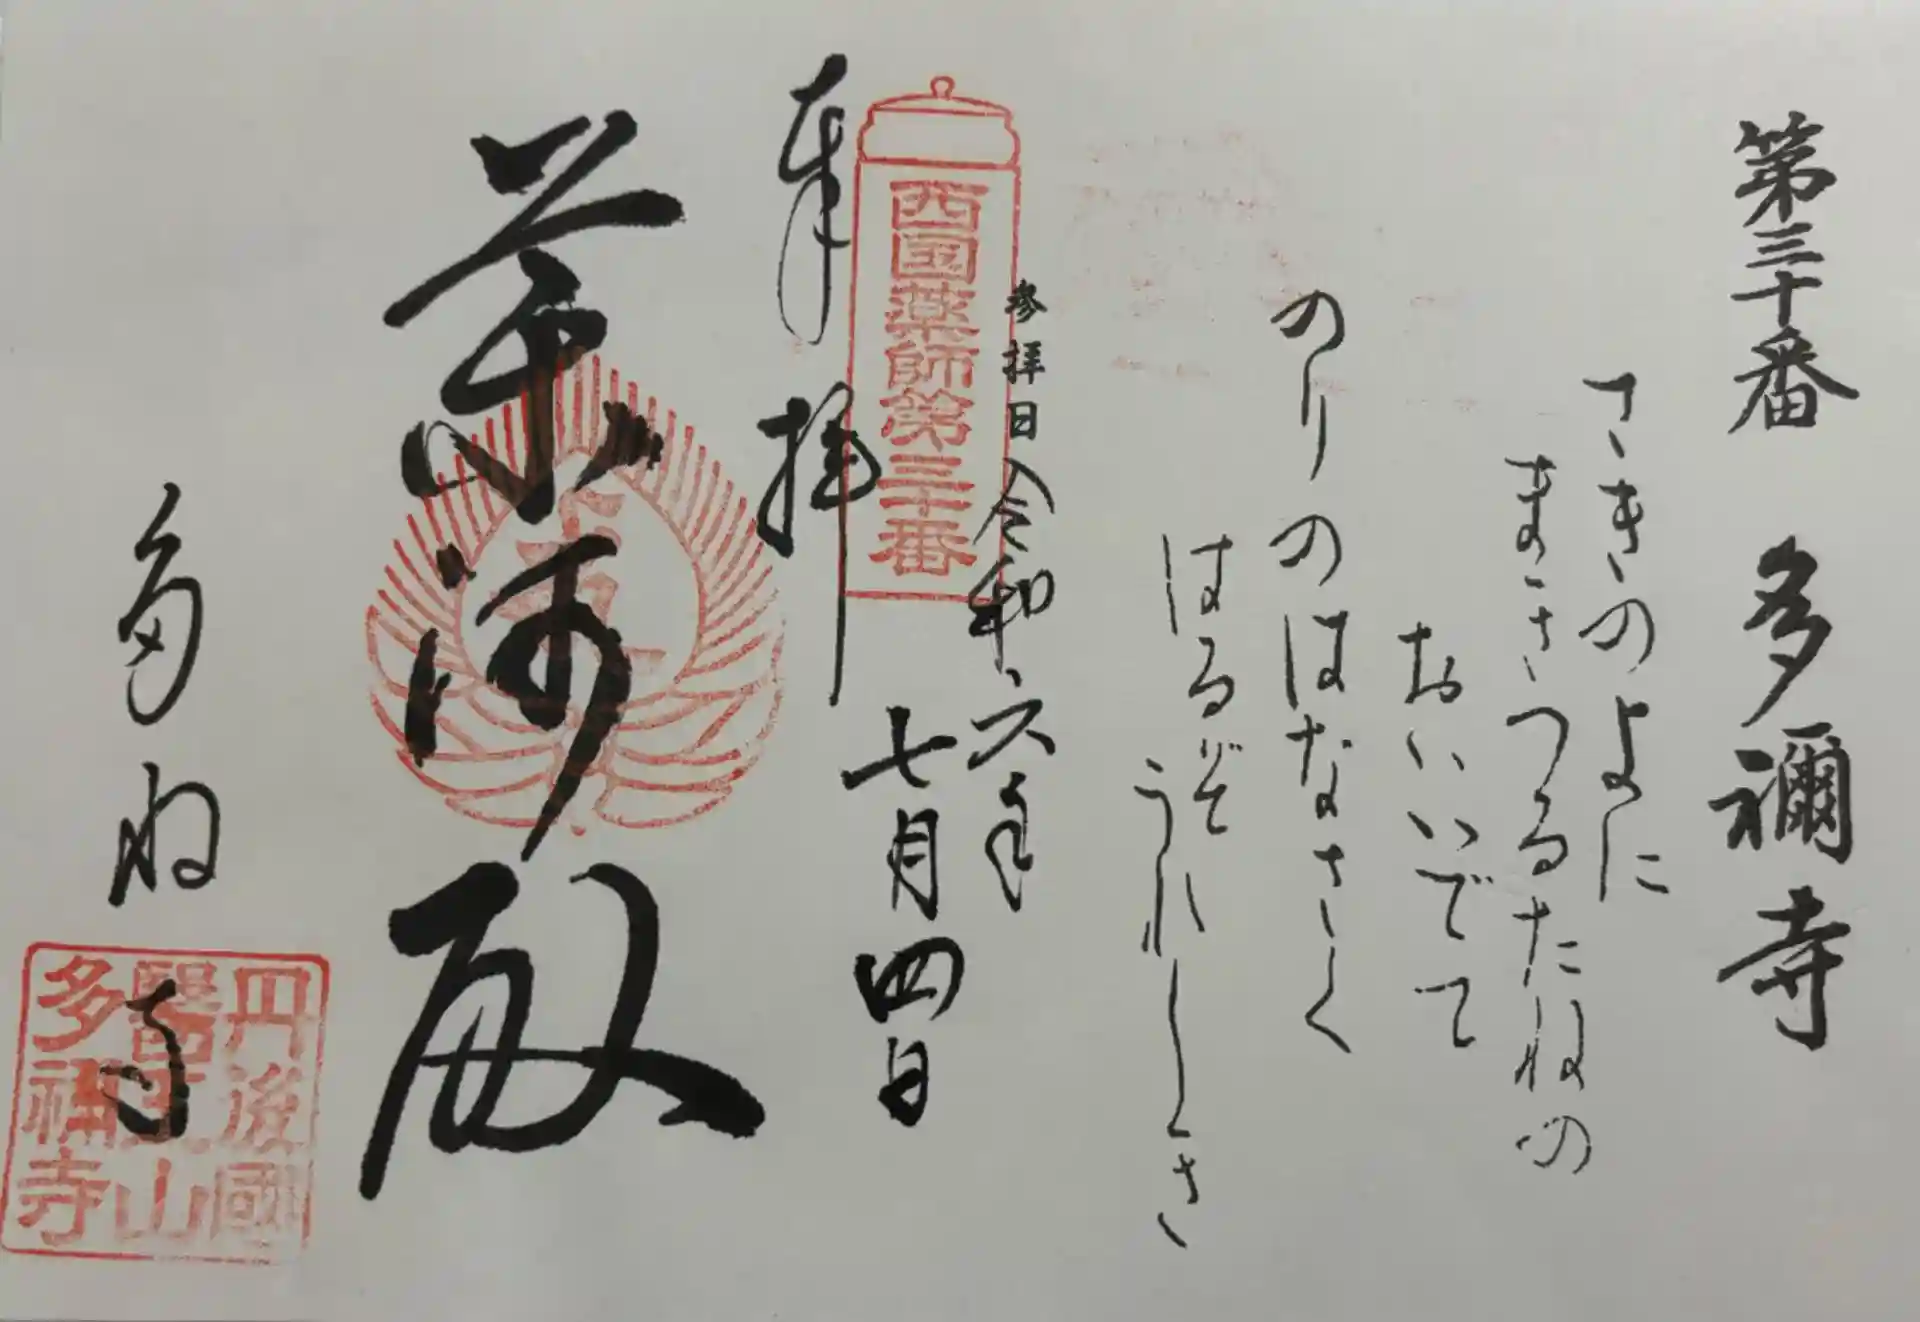 第三十番 多禰寺
さきのよに
まきつるたねの
おいいでて
のりのはなさく
はるぞうれしき
参拝日 令和六年
七月四日
西国薬師第三十番
奉拝
薬師殿
多祢寺
丹後國
醫王山
多祢寺